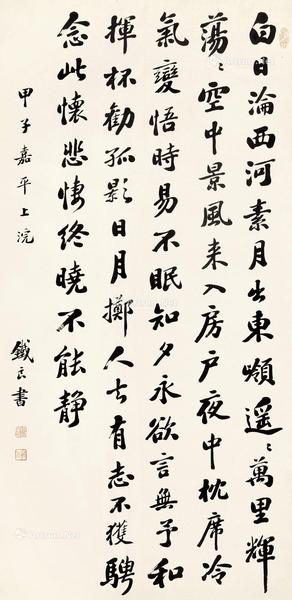 白日淪西河素月出東嶺遥〻萬里輝
蕩〻空中景風来入房户夜中枕席冷
氣變悟時易不眠知夕永欲言無予和
揮杯勸孤影日月擲人去有志不獲騁
念此懷悲悽終曉不能静
甲子嘉平上浣
鐵良書